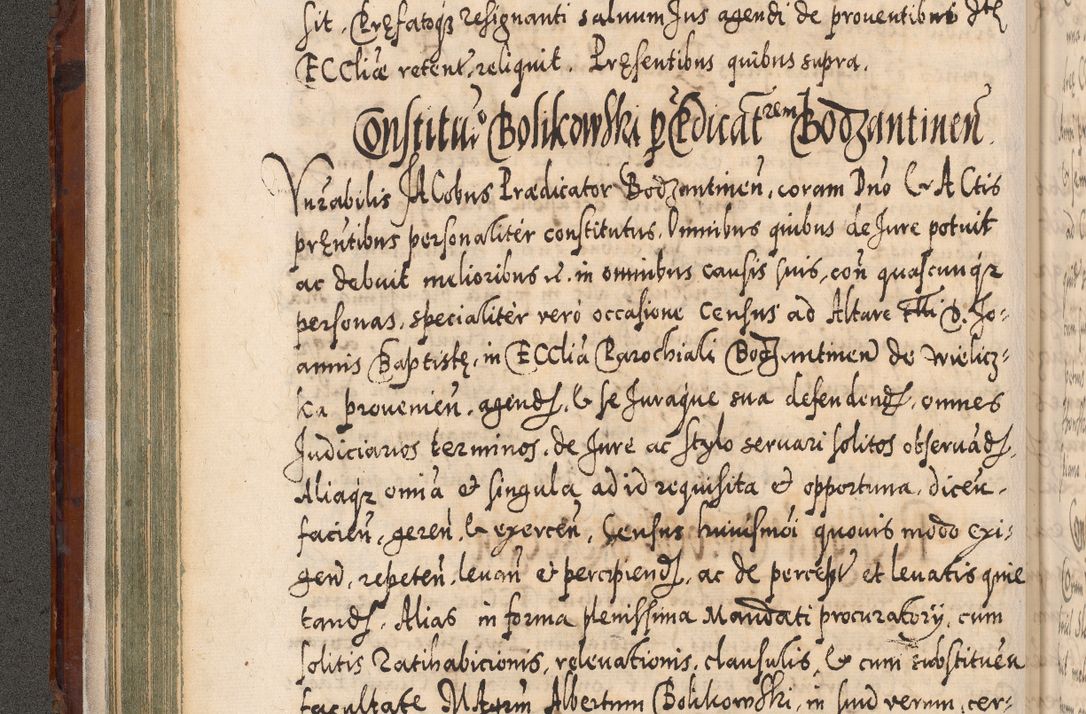 sit. Pręfatoqz resignanti saluum Jus agendi de prouentibus
ECCliæ retent. reliquit. Pręsentibus quibus supra.
Constituo Bolikowski p Prædicatrem Bodzantinen
Vnrabilis JACobus Prædicator Bodzantinen. coram Dno & ACtis
pręntibus personalitèr constitutus. Omnibus quibus de Jure potuit
ac debuit melioribus in omnibus causis suis, con quascunqz
personas, specialitèr verò occasione Census ad Altare tlli D. Jo-
annis Baptistę, in ECCliâ Parochiali Bodzantinen de Wielicz-
ka prouenien. agend. & se Juraque sua defendend. omnes
Judiciarios terminos, de Jure ac stylo seruari solitos obseruãd.
Aliaqz omia et singula ad id requisita et opportuna. dicen.
facien, geren, & exercen, Census huiusmoi quouis modo exi-
gen, repeten, leuan et percipiend, ac de percept et leuatis quie
tand. Alias in forma plenissima Mandati procuratorij, cum
solitis Ratihabicionis, releuationis, clausulis, & cum substituen
facultate Mgrum Albertum Bolikowski, in suũ verum, cer-